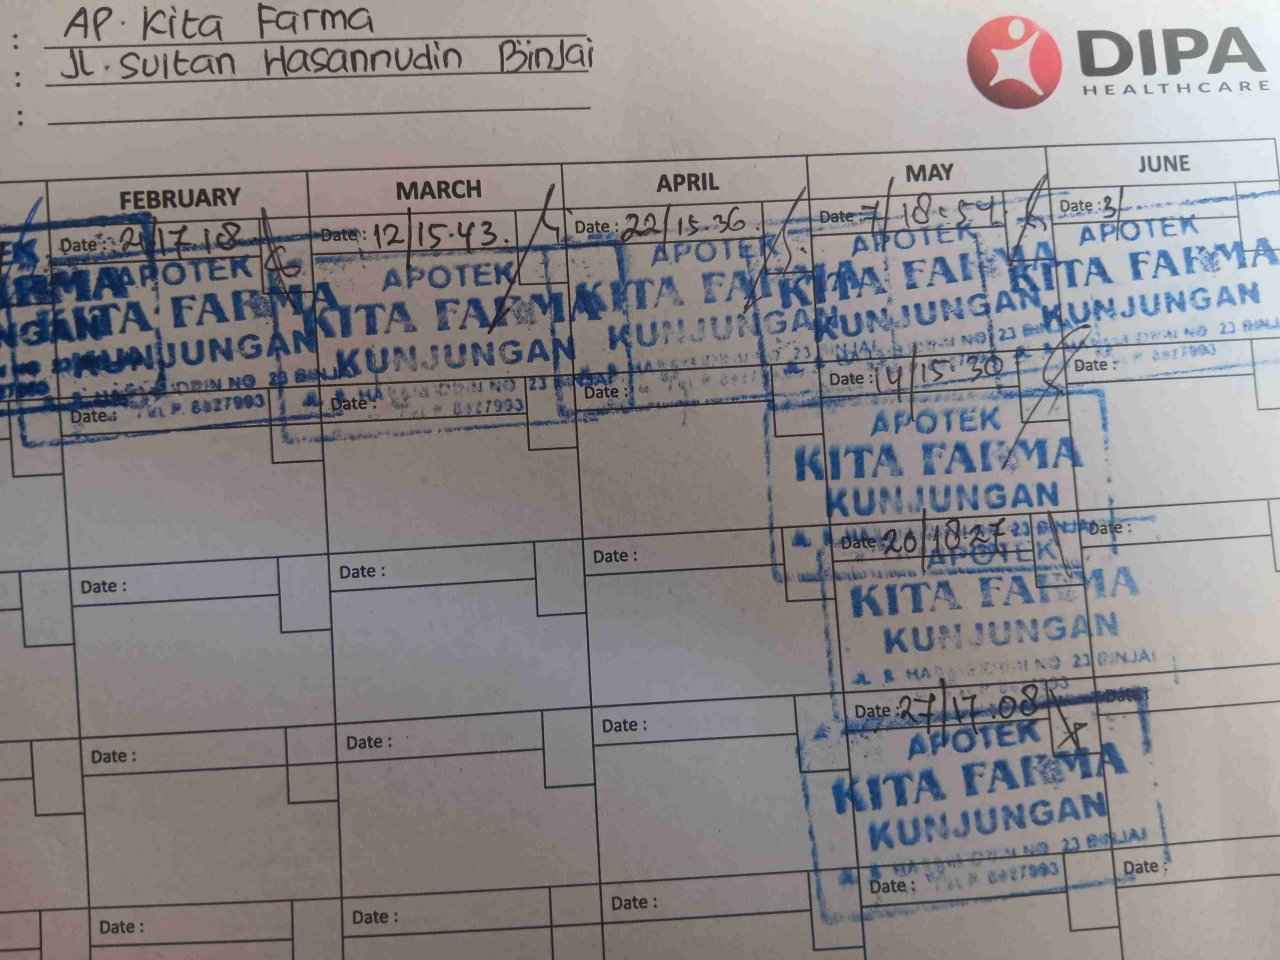 : AP. Kita Farma
: Jl. Sultan Hasannudin Binjai
:
DIPA
HEALTHCARE
FEBRUARY MARCH APRIL MAY JUNE
Date : 17.18 Date : 12/15.43. Date : 22/15.36 Date : 7/18.54 Date : 3/
APOTEK APOTEK APOTEK APOTEK APOTEK
KITA FARMA KITA FARMA KITA FARMA KITA FARMA KITA FARMA
KUNJUNGAN KUNJUNGAN KUNJUNGAN KUNJUNGAN KUNJUNGAN
NO 23 BINJAI NO 23 NO 23 BINJAI
TELP. 8827993 8827993
Date : Date : Date : Date : 14/15.30 Date :
APOTEK
KITA FARMA
KUNJUNGAN
23 BINJAI
Date : Date : Date : Date : 20/18.27 Date :
APOTEK
KITA FARMA
KUNJUNGAN
NO 23 BINJAI
Date : Date : Date : Date : 27/17.08 Date :
APOTEK
KITA FARMA
KUNJUNGAN
NO 23 BINJAI
TELP. 8827993
Date : Date : Date : Date : Date :